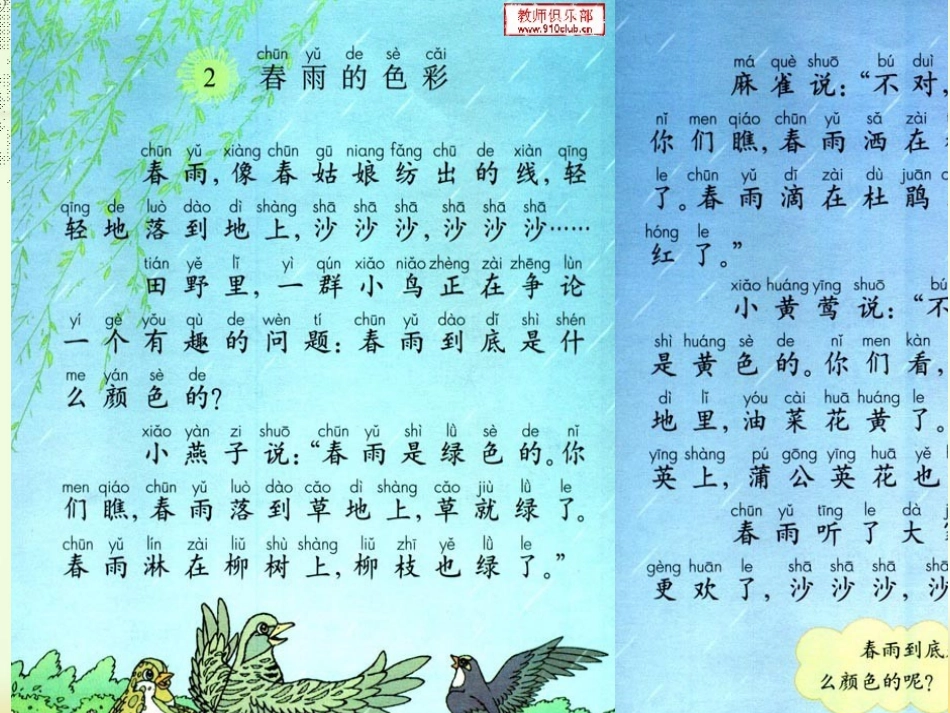 教师俱乐部
www.910club.cn
chūn yǔ de sè cǎi
2 春雨的色彩
chūn yǔ xiàng chūn gū niang fǎng chū de xiàn qīng
春雨,像春姑娘纺出的线,轻
qīng de luò dào dì shàng shā shā shā shā shā shā
轻地落到地上,沙沙沙,沙沙沙……
tián yě lǐ yì qún xiǎo niǎo zhèng zài zhēng lùn
田野里,一群小鸟正在争论
yí gè yǒu qù de wèn tí chūn yǔ dào dǐ shì shén
一个有趣的问题:春雨到底是什
me yán sè de
么颜色的?
xiǎo yàn zi shuō chūn yǔ shì lǜ sè de nǐ
小燕子说:“春雨是绿色的。你
men qiáo chūn yǔ luò dào cǎo dì shàng cǎo jiù lǜ le
们瞧,春雨落到草地上,草就绿了。
chūn yǔ lín zài liǔ shù shàng liǔ zhī yě lǜ le
春雨淋在柳树上,柳枝也绿了。”
má què shuō bú duì
麻雀说:“不对,
nǐ men qiáo chūn yǔ sǎ zài
你们瞧,春雨洒在
le chūn yǔ dī zài dù juān
了。春雨滴在杜鹃
hóng le
红了。”
xiǎo huáng yīng shuō bú
小黄莺说:“不
shì huáng sè de nǐ men kàn
是黄色的。你们看,
dì lǐ yóu cài huā huáng le
地里,油菜花黄了。
yīng shàng pú gōng yīng huā yě
英上,蒲公英花也
chūn yǔ tīng le dà
春雨听了大
gèng huān le shā shā shā shā
更欢了,沙沙沙,沙
春雨到底
么颜色的呢?